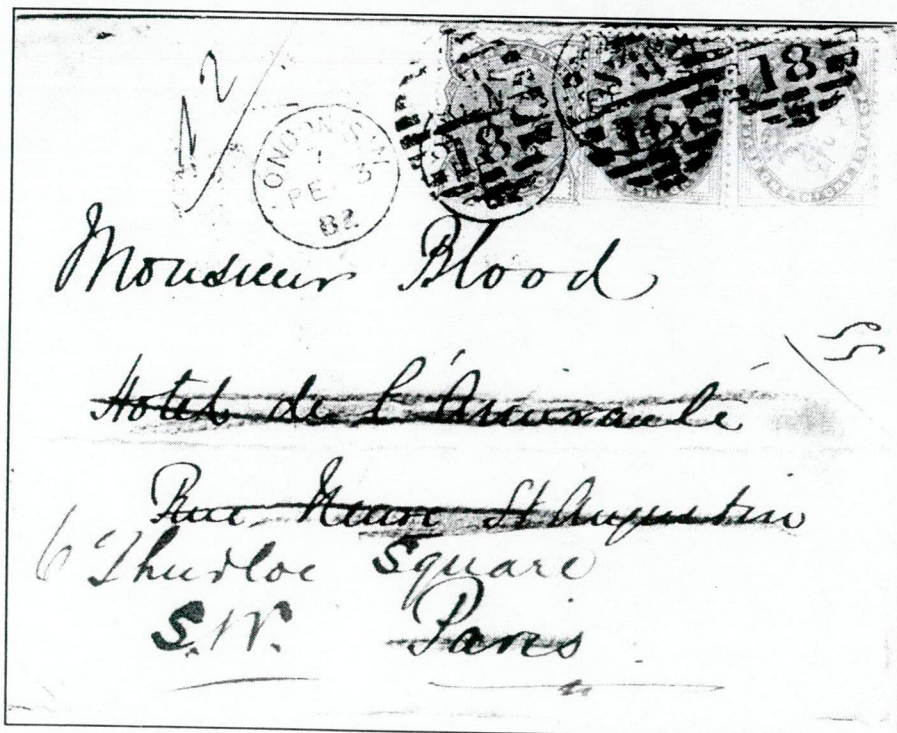 22
LONDON S.W
1
FE 3
82
18
18
18
Monsieur Blood
55
Hotel de L'Amirauté
Rue Neuve St Augustin
6 Thurloe Square
S.W. Paris